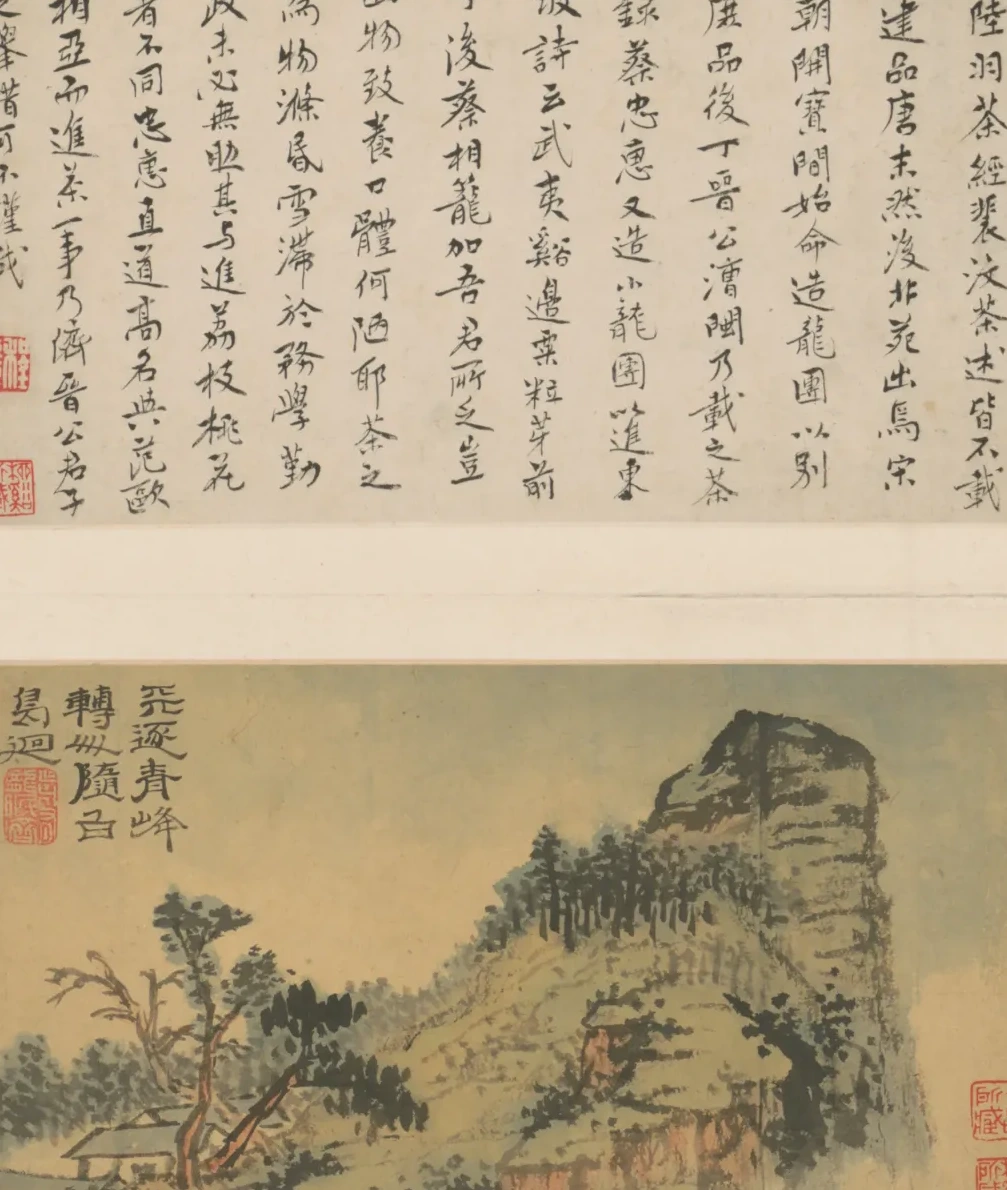 陸羽茶經裴汶茶述皆不載
建品唐末然後北苑出焉宋
朝開寶間始命造龍團以別
庶品後丁晉公漕閩乃載之茶
錄蔡忠惠又造小龍團以進東
坡詩云武夷谿邊粟粒芽前
丁後蔡相籠加吾君所乏豈
此物致養口體何陋耶茶之
為物滌昏雪滯於務學勤
政未必無助其与進荔枝桃花
者不同忠惠直道高名與范歐
相亞而進茶一事乃儕晉公君子
之舉措可不謹哉
逐青峰
轉隨白
鳥迴
所藏